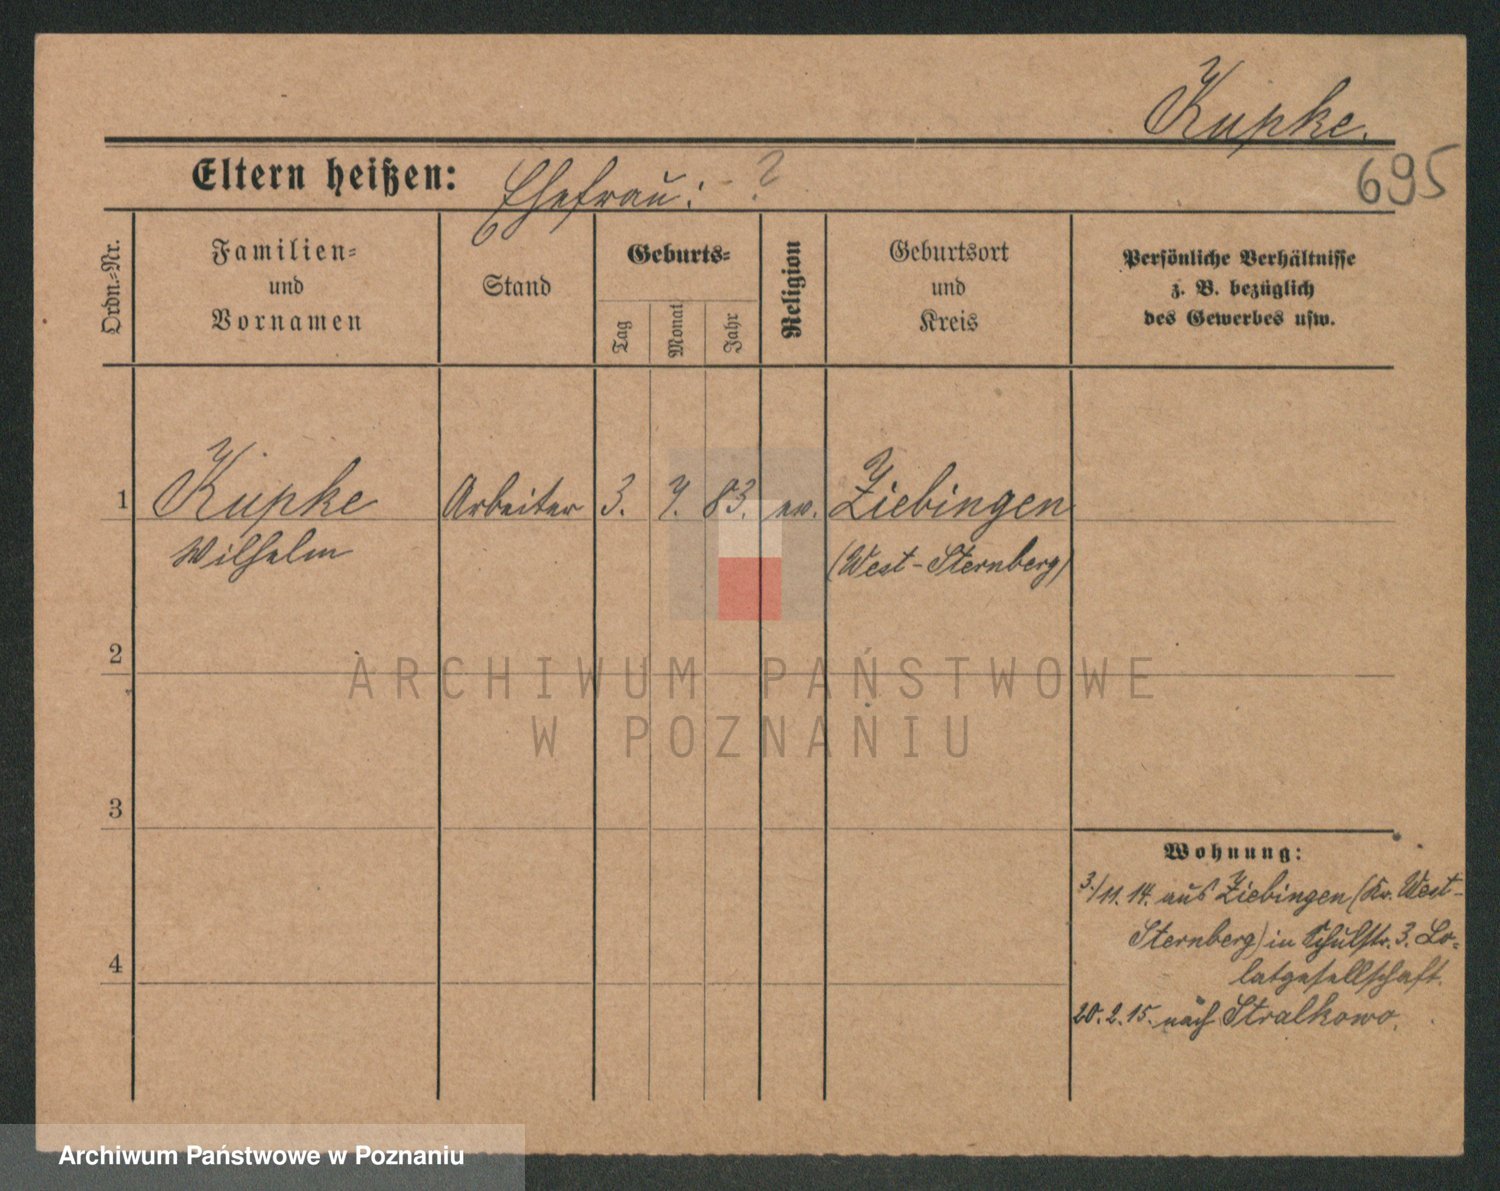 Kupke.
695
Eltern heißen: Ehefrau: - ?
Ordn.-Nr.
Familien-
und
Vornamen
Stand
Geburts-
Tag
Monat
Jahr
Religion
Geburtsort
und
Kreis
Persönliche Verhältnisse
z. B. bezüglich
des Gewerbes usw.
1 Kupke Arbeiter 3. 7. 83. ev. Ziebingen
Wilhelm (West-Sternberg)
2
ARCHIWUM PAŃSTWOWE
W POZNANIU
3
Wohnung:
3./11. 14. aus Ziebingen (Kr. West-
Sternberg) in Schulstr. 3.
4
20. 2. 15. nach Stralkowo.
Archiwum Państwowe w Poznaniu